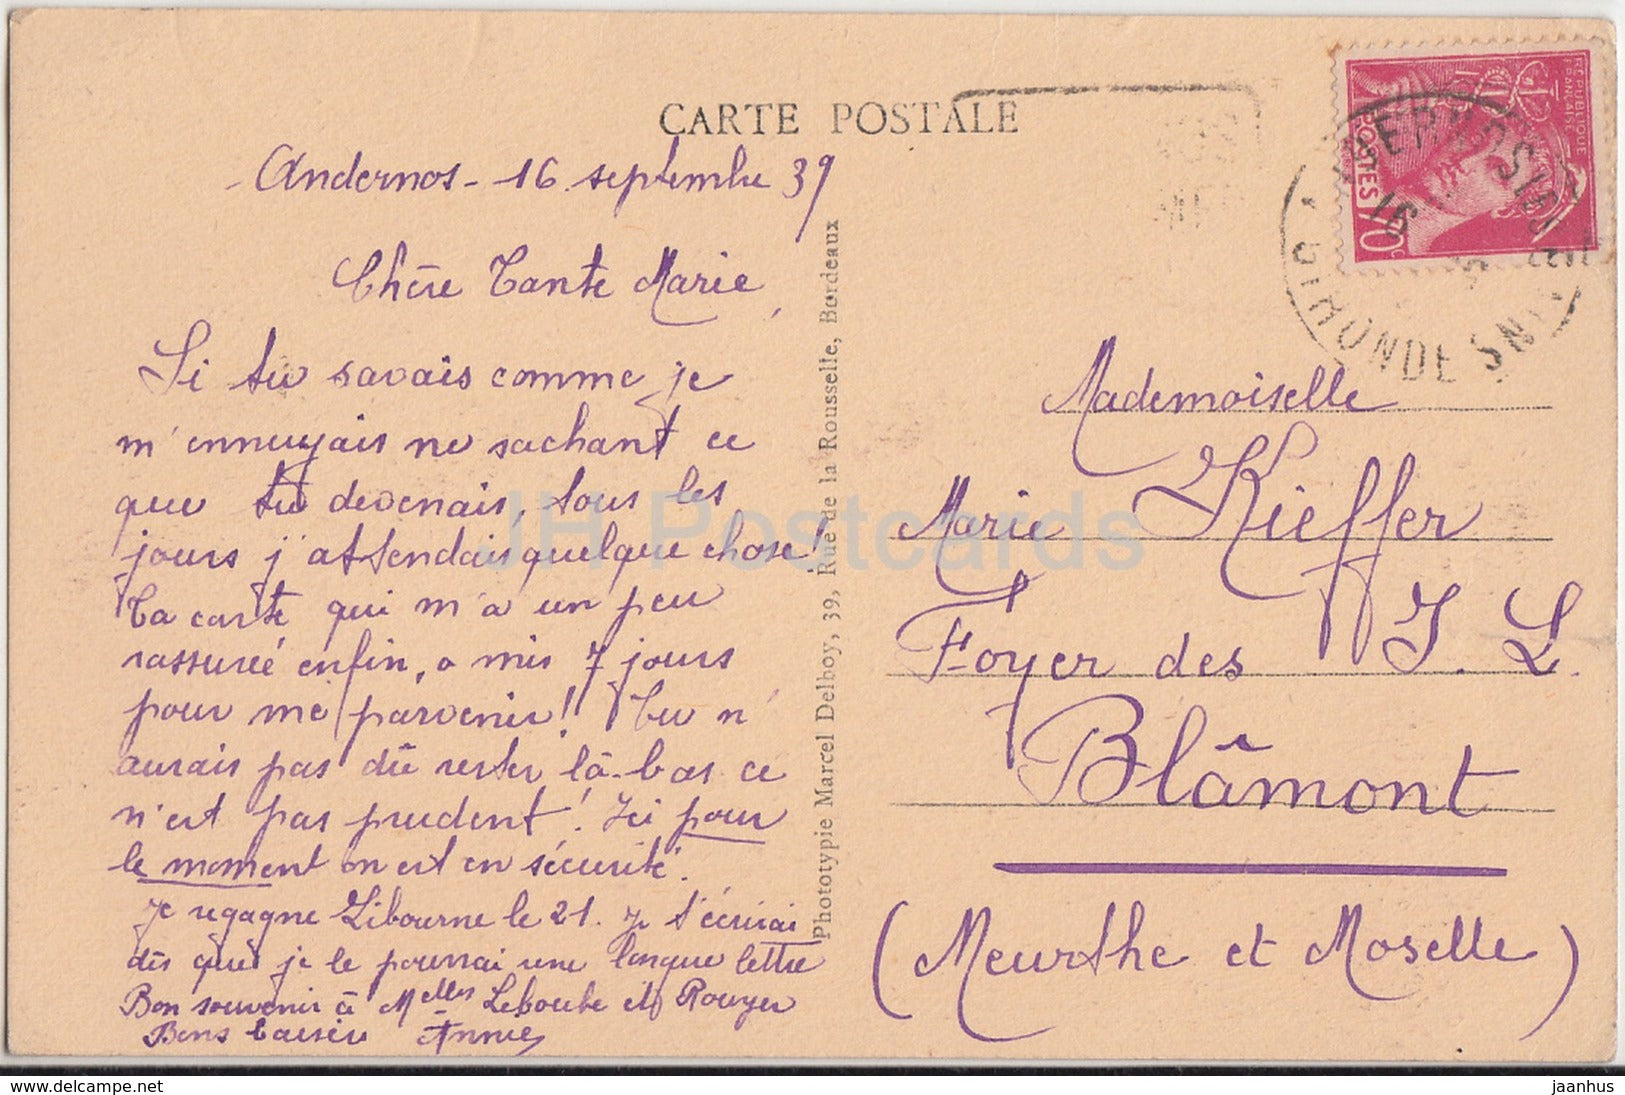 CARTE POSTALE
Andernos - 16 septembre 39
Chère Tante Marie,
Si tu savais comme je
m'ennuyais ne sachant ce
que tu devenais, tous les
jours j'attendais quelque chose!
Ta carte qui m'a un peu
rassurée enfin, a mis 7 jours
pour me parvenir!! Tu n'
aurais pas dû rester là-bas ce
n'est pas prudent! Ici pour
le moment on est en sécurité.
Je regagne Libourne le 21. Je t'écrirai
dès que je le pourrai une longue lettre
Bon souvenir à Melles Leboube et Rouyer
Bons baisers Annie
Phototypie Marcel Delboy, 39, Rue de la Rousselle, Bordeaux
RÉPUBLIQUE
FRANÇAISE
POSTES
70c
16
GIRONDE
Mademoiselle
Marie Kieffer
Foyer des J. L.
Blâmont
(Meurthe et Moselle)
JH Postcards
For sale on www.delcampe.net
jaanhus